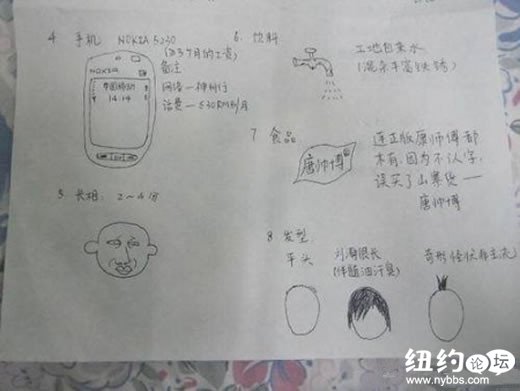 4 手机 NOKIA 5230
(近3个月的工资)
备注
网络—神州行
话费—≤30RMB/月
NOKIA
中国移动
14:14
5. 长相: 2~4分
6. 饮料
工地自来水
(混杂丰富铁锈)
7 食品
唐帅博
连正版康师傅都
木有,因为不认字,
误买了山寨货——
唐帅博
8 发型.
平头
刘海很长
(伴随油汗臭)
奇形怪状非主流
纽约论坛
www.nybbs.com